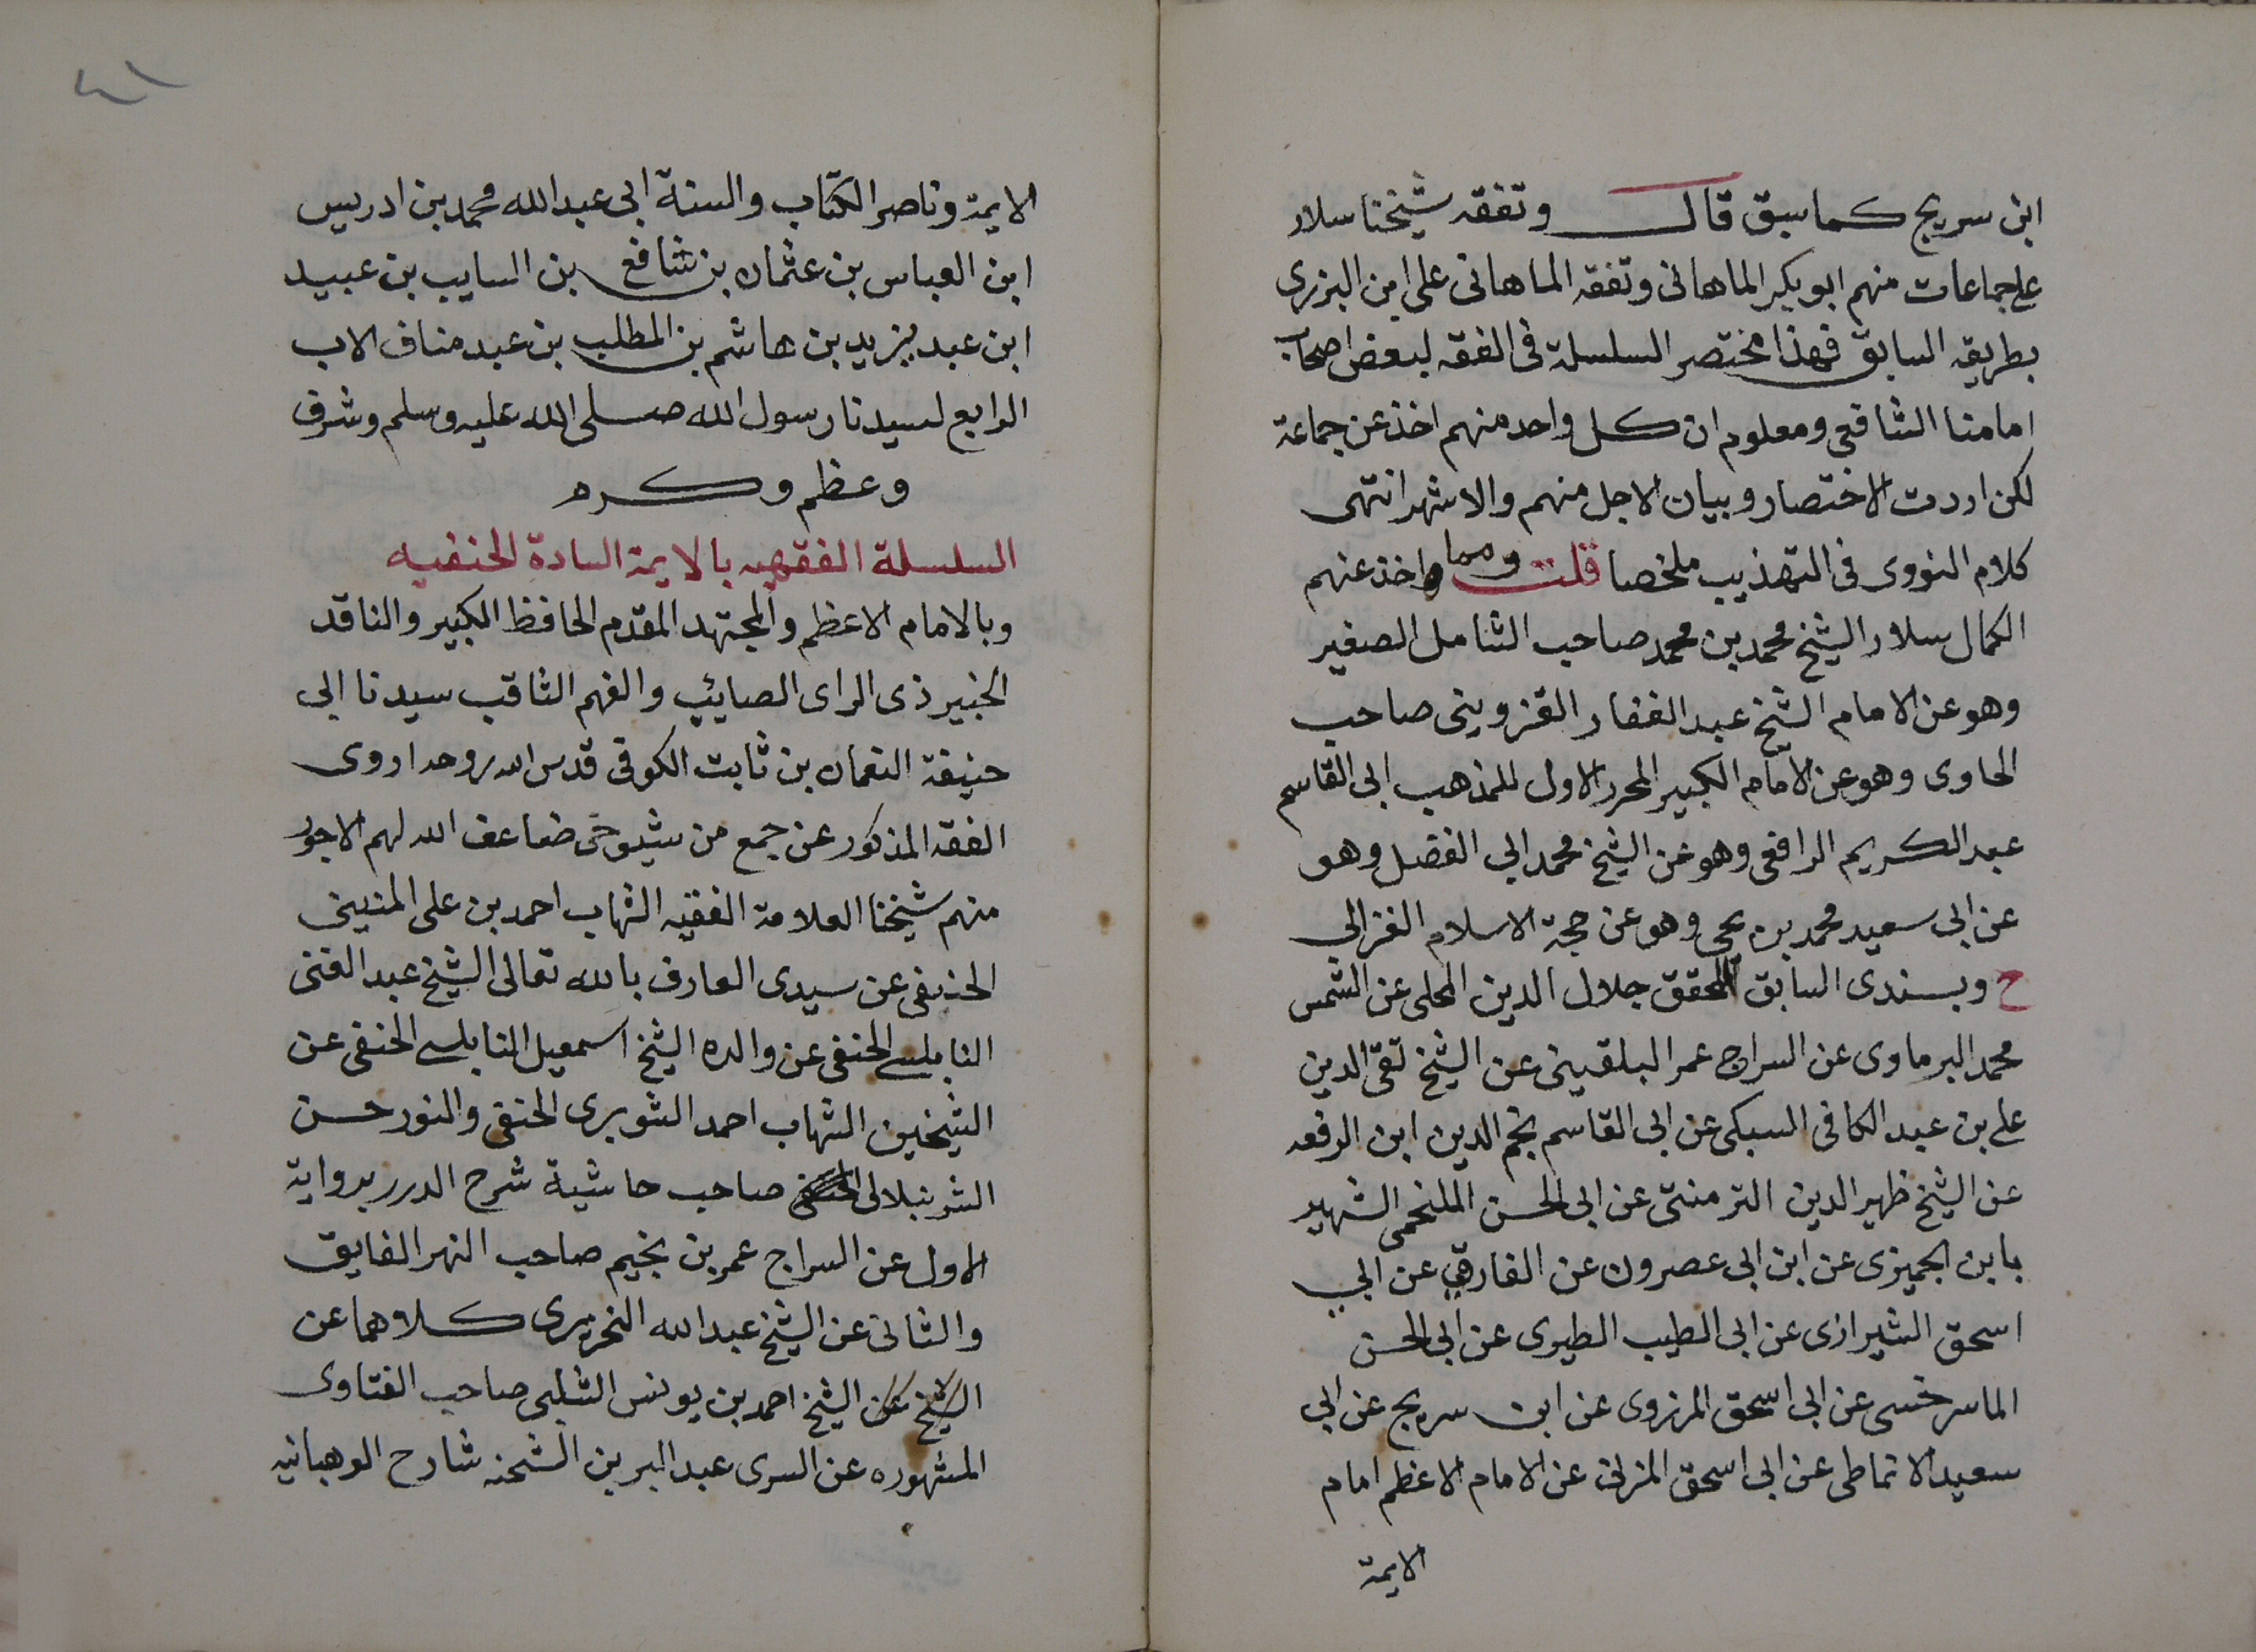 ابن سريج كما سبق قال وتفقه شيخنا سلار
على جماعات منهم ابو بكر الماهانى وتفقه الماهانى على ابن البزرى
بطريقه السابق فهذا مختصر السلسلة فى الفقه لبعض اصحاب
امامنا الشافعى ومعلوم ان كل واحد منهم اخذ عن جماعة
لكن اردت الاختصار وبيان الاجل منهم والاشهر انتهى
كلام النووى فى التهذيب ملخصا قلت ومما واخذ عنهم
الكمال سلار الشيخ محمد بن محمد صاحب الشامل الصغير
وهو عن الامام الشيخ عبد الغفار القزوينى صاحب
الحاوى وهو عن الامام الكبير المحرر الاول للمذهب ابى القاسم
عبد الكريم الرافعى وهو عن الشيخ محمد ابى الفضل وهو
عن ابى سعيد محمد بن يحى وهو عن حجة الاسلام الغزالى
ح وبسندى السابق للمحقق جلال الدين المحلى عن الشمس
محمد البرماوى عن السراج عمر البلقينى عن الشيخ تقى الدين
على بن عبد الكافى السبكى عن ابى القاسم نجم الدين ابن الرفعه
عن الشيخ ظهير الدين التزمنتى عن ابى الحسن الملخمى الشهير
بابن الجميزى عن ابن ابى عصرون عن الفارقى عن ابى
اسحق الشيرازى عن ابى الطيب الطبرى عن ابى الحسن
الماسرخسى عن ابى اسحق المروزى عن ابن سريج عن ابى
سعيد الانماطى عن ابى اسحق المزنى عن الامام الاعظم امام
الايمة
٤٦
الايمة وناصر الكتاب والسنة ابى عبد الله محمد بن ادريس
ابن العباس بن عثمان بن شافع بن السايب بن عبيد
ابن عبد يزيد بن هاشم بن المطلب بن عبد مناف الاب
الرابع لسيدنا رسول الله صلى الله عليه وسلم وشرف
وعظم وكرم
السلسلة الفقهيه بالايمة السادة الحنفيه
وبالامام الاعظم والمجتهد المقدم الحافظ الكبير والناقد
الخبير ذى الراى الصايب والفهم الثاقب سيدنا ابى
حنيفة النعمان بن ثابت الكوفى قدس الله روحه اروى
الفقه المذكور عن جمع من شيوخى ضاعف الله لهم الاجور
منهم شيخنا العلامة الفقيه الشهاب احمد بن على المنينى
الحنفى عن سيدى العارف بالله تعالى الشيخ عبد الغنى
النابلسى الحنفى عن والده الشيخ اسمعيل النابلسى الحنفى عن
الشيخين الشهاب احمد الشوبرى الحنفى والنور حسن
الشرنبلالى الحنفى صاحب حاشية شرح الدرر برواية
الاول عن السراج عمر بن نجيم صاحب النهر الفايق
والثانى عن الشيخ عبد الله النحريرى كلاهما عن
الشيخ عن الشيخ احمد بن يونس الشلبى صاحب الفتاوى
المشهوره عن السرى عبد البر بن الشحنه شارح الوهبانيه